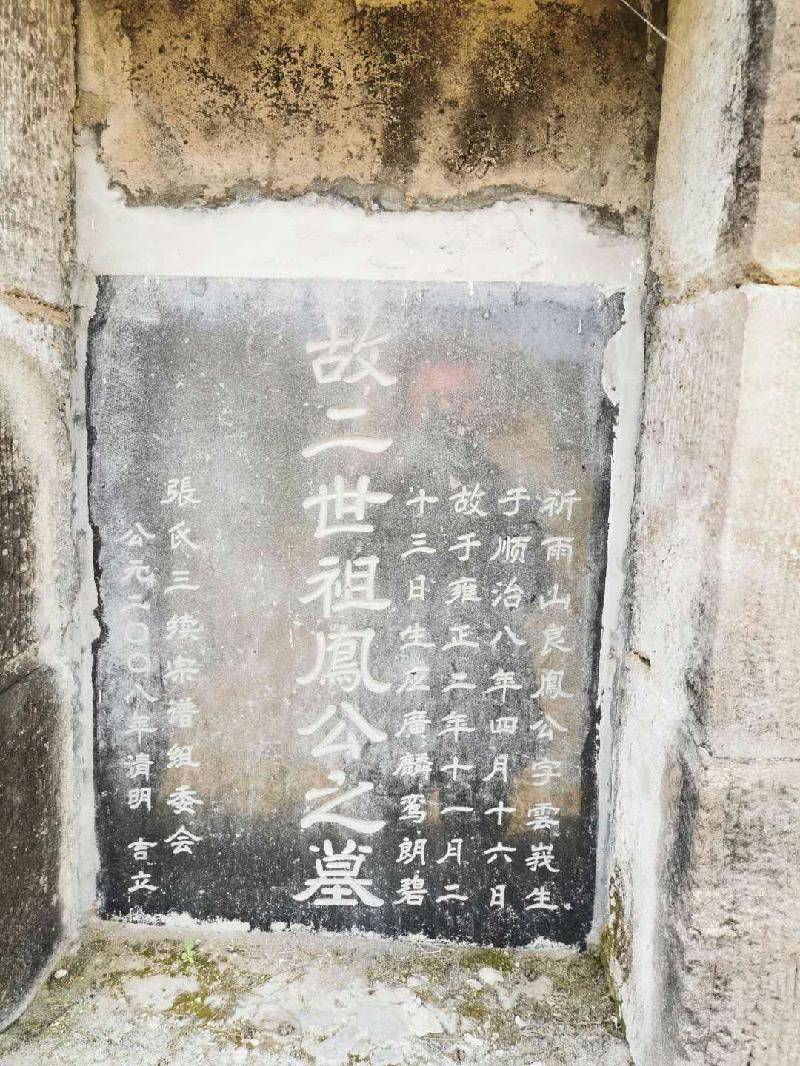 祈雨山良鳳公字雲峩生
于顺治八年四月十六日
故于雍正二年十一月二
十三日生应廣麟鸾朗碧
故二世祖鳳公之墓
張氏三续宗谱组委会
公元二〇〇八年清明 吉立